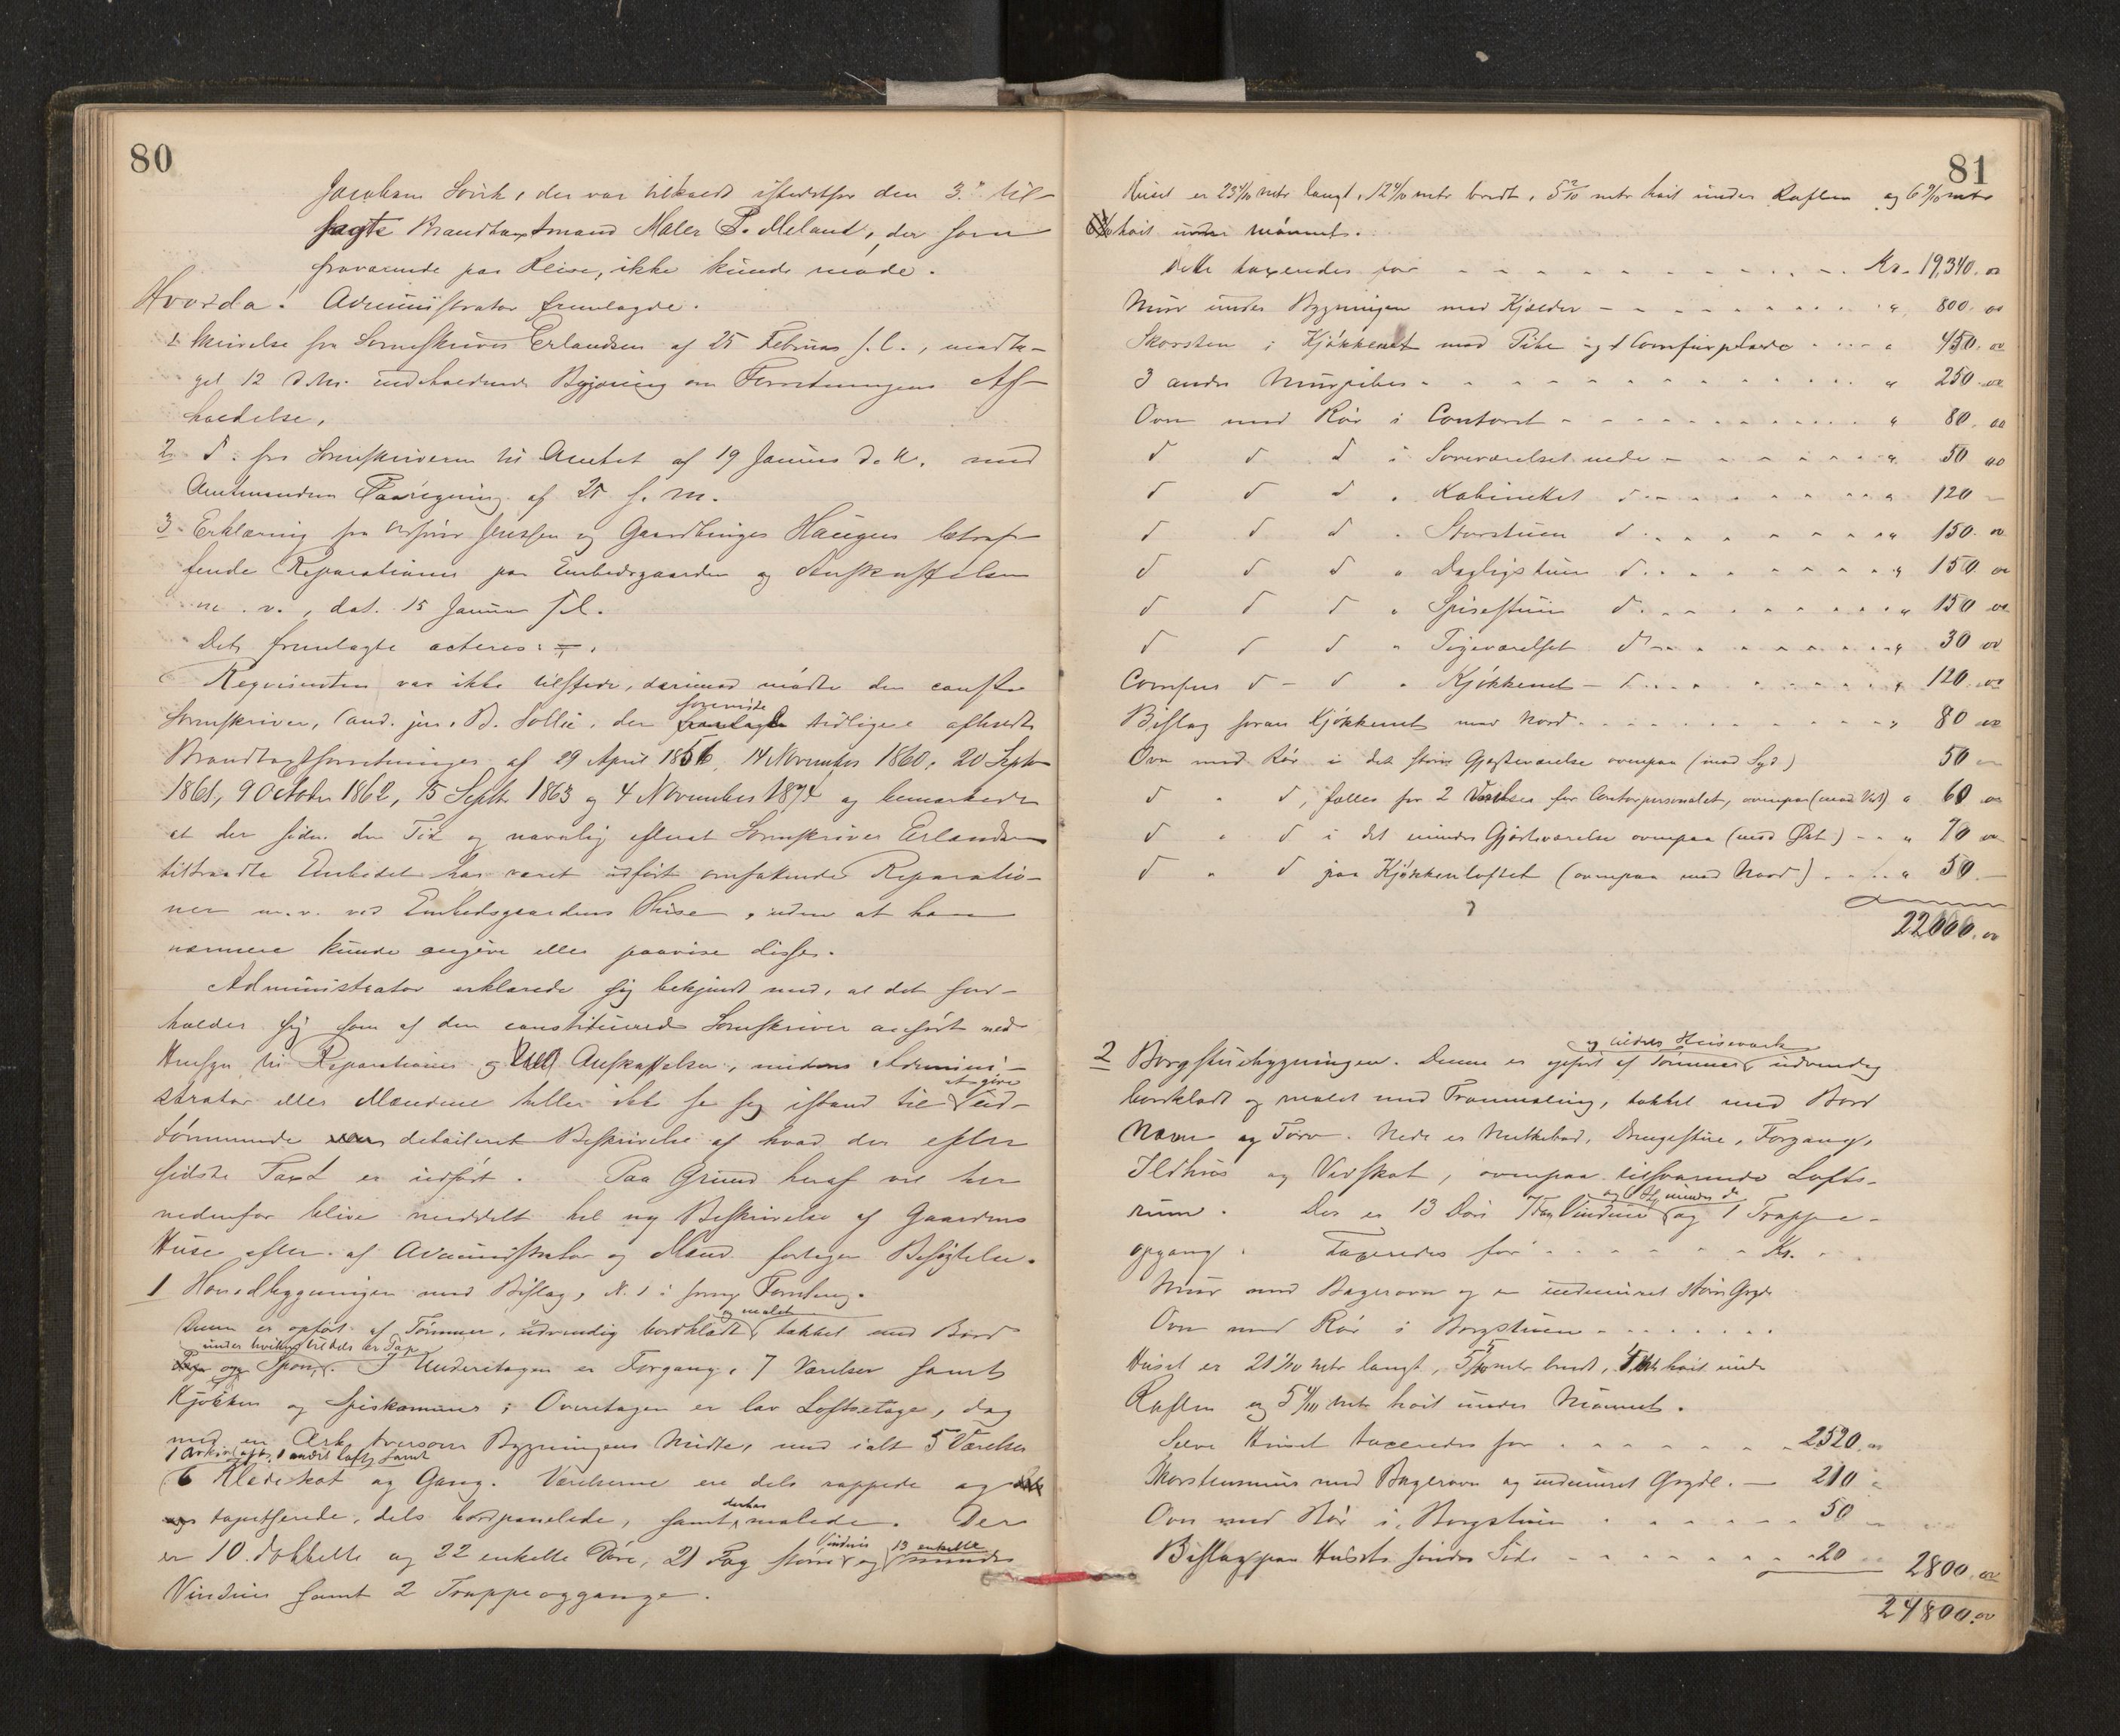 80
Jacobsen Sørvik, der var tilkaldt istedetfor den 3. til-
sagte Brandtaxtmand Maler P. Meland, der som
fraværende paa Reise, ikke kunde møde.
Hvorda! Administrator fremlagde.
1 Skrivelse fra Sorenskriver Erlandsen af 25 Februar f. A., modta-
get 12 d. Ms. indeholdende Begjæring om Forretningens Af-
holdelse.
2 d. fra Sorenskriveren til Amtet af 19 Januar d. A. med
Amtmandens Paategning af 25 f. M.
3 Erklæring fra Jenssen og Gaardbruger Haugen betref-
fende Reparationer paa Embedsgaarden og Anskaffelsen
m. v., dat. 15 Januar f. A.
Det fremlagte acteres:
Requirenten var ikke tilstede, derimod mødte den const.
Sorenskriver, Cand. jur. B. Sollie, der foreviste tidligere afholdte
Brandtaxtforretninger af 29 April 1856, 14 November 1860, 20 Septbr
1861, 9 October 1862, 15 Septbr 1863 og 4 November 1874 og bemærkede
at der siden den Tid og navnlig efterat Sorenskriver Erlandsen
tiltraadte Embedet har været udført omfattende Reparatio-
ner m. v. ved Embedsgaardens Huse, uden at han
nærmere kunde angive eller paavise disse.
Administrator erklærede sig bekjendt med, at det for-
holder sig som af den constituerede Sorenskriver anført med
Hensyn til Reparationer og Anskaffelser, medens Admini-
strator eller Mændene heller ikke se sig istand til at give ud-
tømmende detailleret Beskrivelse af hvad der efter
sidste Taxt er udført. Paa Grund heraf vil her
nedenfor blive meddelt hel ny Beskrivelse af Gaardens
Huse efter af Administrator og Mænd foretagen Besigtelse.
1 Hovedbygningen med Bislag, N. 1 i forrige Forretning.
Denne er opført af Tømmer, udvendig bordklædt og malet, tækket med Bord
under hvilket tildels er Tag
Spon. I Underetagen er Forgang, 7 Værelser samt
Kjøkken og Spiskammer; Overetagen er lav Loftsetage, dog
med en Ark tversover Bygningens Midte, med ialt 5 Værelser
1 Arkivloft, 1 andet Loft samt
6 Klædeskot og Gang. Værelserne ere dels rappede og
tapetserede, dels bordpanelede, samt derhos malede. Der
er 10 dobbelte og 22 enkelte Døre, 21 Fag større Vinduer og 13 enkelte mindre
Vinduer samt 2 Trappeopgange.
81
Huset er 23 4/10 mtr langt, 12 4/10 mtr bredt, 5 2/10 mtr høit under Raften og 6 9/10 mtr
høit under Mønnet.
Dette taxeredes for Kr. 19,340. 00
Muur under Bygningen med Kjælder " 800. 00
Skorsten i Kjøkkenet med Pibe og 1 Comfurplade " 450. 00
3 andre Murpiber " 250. 00
Ovn med Rør i Contoret " 80. 00
d d d i Soveværelset nede " 50 00
d d d " Kabinettet d " 120 -
d d d " Storstuen d " 150. 00
d d d " Dagligstuen d " 150 00
d d d " Spisestuen d " 150 00
d d d " Pigeværelset d " 30 00
Comfur d - d " Kjøkkenet - d " 120. 00
Bislag foran Kjøkkenet mod Nord " 80 00
Ovn med Rør i det større Gjæsteværelse ovenpaa (mod Syd) 50 00
d " d, fælles for 2 Værelser for Contorpersonalet, ovenpaa (mod Vest) " 60 00
d " d i det mindre Gjæsteværelse ovenpaa (mod Øst) " 70 00
d " d paa Kjøkkenloftet (ovenpaa mod Nord) " 50. -
22000. 00
2 Borgstuebygningen. Denne er opført af Tømmer, udvendig
bordklædt og malet med Tranmaling, tækket med Bord
Næver og Torv. Nede er Melkebod, Drengestue, Forgang,
Ildhus og Vedskot, ovenpaa tilsvarende Lofts-
rum. Der er 13 Døre 7 Fag Vinduer og 6 Stkr mindre do og 1 Trappe-
opgang. Taxeredes for Kr.
Muur med Bagerovn og en indmuret større Gryde
Ovn med Rør i Borgstuen
Huset er 21 1/10 mtr langt, bredt, høit under
Raften og 5 4/10 mtr høit under Mønnet.
Selve Huset taxeredes for 2520. 00
Skorstensmur med Bagerovn og indmuret Gryde. 210
Ovn med Rør i Borgstuen 50
Bislag paa Husets søndre Side 20 2800. 00
24800. 00